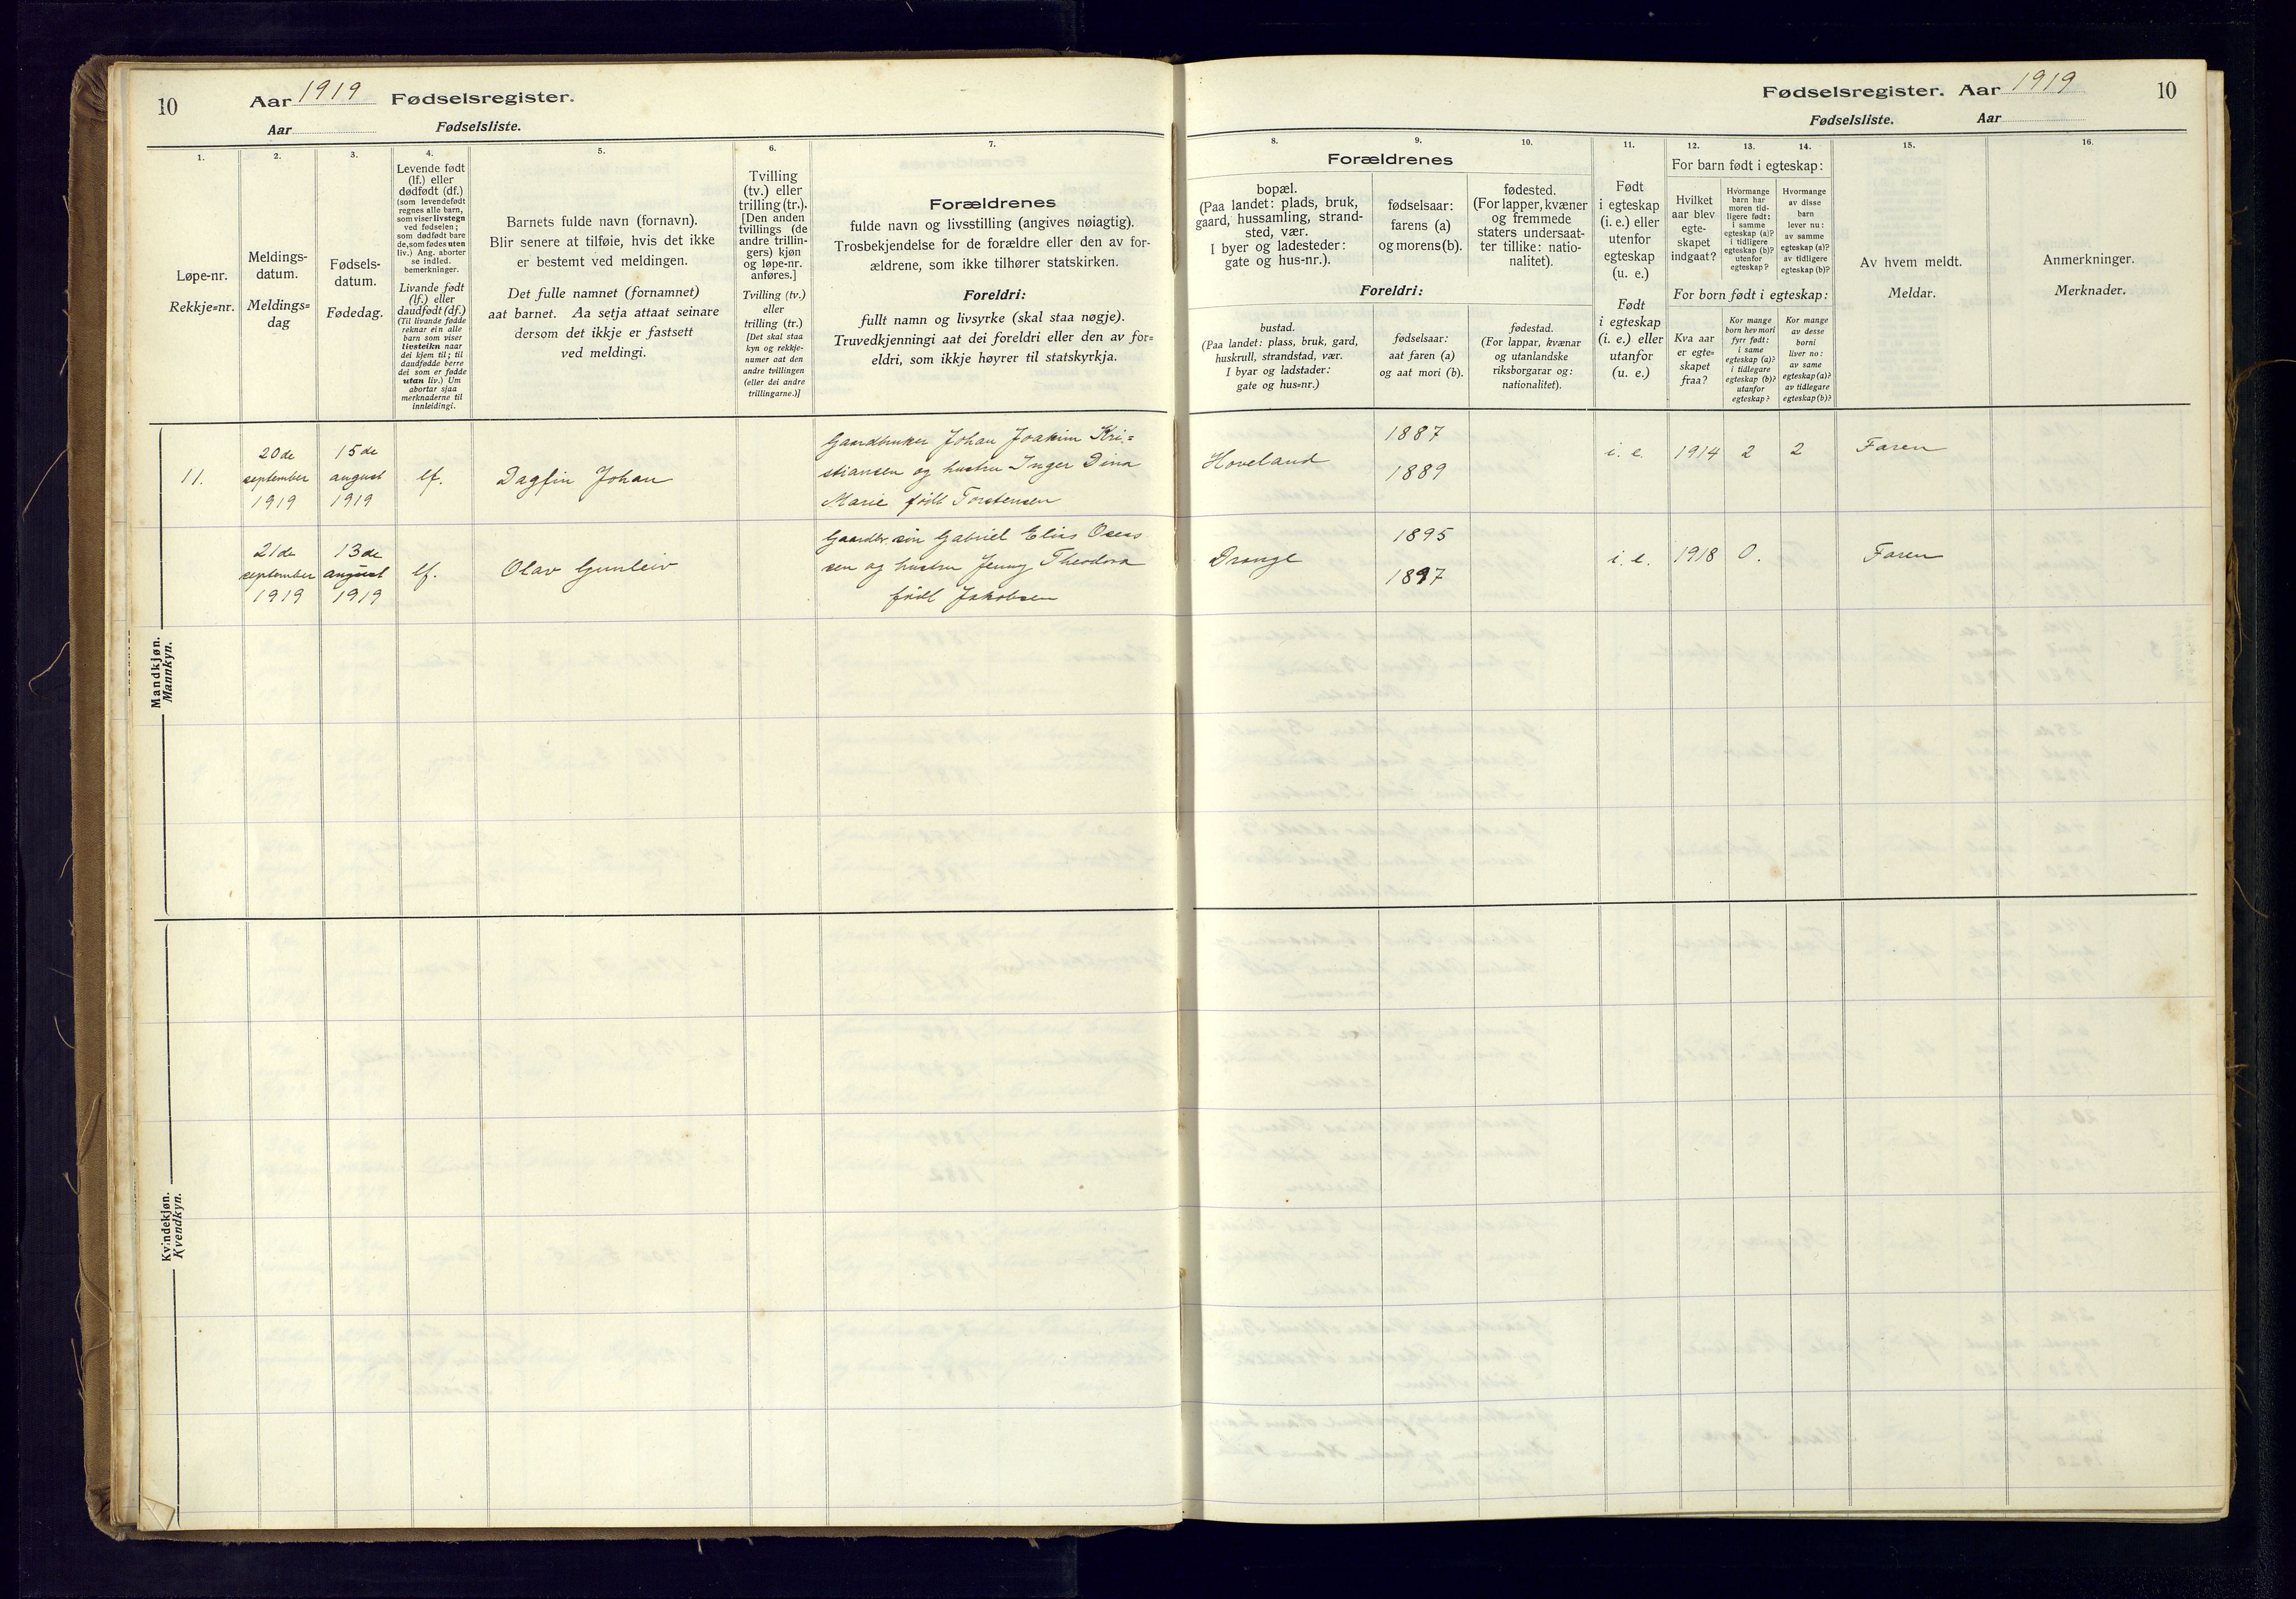 10
Aar 1919 Fødselsregister.
Aar Fødselsliste.
1.
Løpe-nr.
Rekkje=nr.
2.
Meldings-
datum.
Meldings=
dag
3.
Fødsels-
datum.
Fødedag.
4.
Levende født
(lf.) eller
dødfødt (df.)
(som levendefødt
regnes alle barn,
som viser livstegn
ved fødselen;
som dødfødt bare
de, som fødes uten
liv.) Ang. aborter
se indled.
bemerkninger.
Livande født
(lf.) eller
daudfødt (df.)
(Til livande fødde
reknar ein alle
barn som viser
livsteikn naar
dei kjem til; til
daudfødde berre
dei som er fødde
utan liv.) Um
abortar sjaa
merknaderne til
innleidingi.
5.
Barnets fulde navn (fornavn).
Blir senere at tilføie, hvis det ikke
er bestemt ved meldingen.
Det fulle namnet (fornamnet)
aat barnet. Aa setja attaat seinare
dersom det ikkje er fastsett
ved meldingi.
6.
Tvilling
(tv.) eller
trilling (tr.).
[Den anden
tvillings (de
andre trillin-
gers) kjøn
og løpe-nr.
anføres.]
Tvilling (tv.)
eller
trilling (tr.)
[Det skal staa
kyn og rekkje-
numer aat den
andre tvillingen
(eller dei andre
trillingarne.)]
7.
Forældrenes
fulde navn og livsstilling (angives nøiagtig).
Trosbekjendelse for de forældre eller den av for-
ældrene, som ikke tilhører statskirken.
Foreldri:
fullt namn og livsyrke (skal staa nøgje).
Truvedkjenningi aat dei foreldri eller den av for=
eldri, som ikkje høyrer til statskyrkja.
Mandkjøn.
Mannkyn.
11.
20de
september
1919
15de
august
1919
lf.
Dagfin Johan
Gaardbruker Johan Joakim Kri=
stiansen og hustru Inger Dina
Marie født Torstensen
21de
september
1919
13de
august
1919
lf.
Olav Gunleiv
Gaardbr. søn Gabriel Elias
sen og hustru Jenny Theodora
født Jakobsen
Kvindekjøn.
Kvendkyn.
Fødselsregister. Aar 1919
10
Fødselsliste. Aar
8.
Forældrenes
bopæl.
(Paa landet: plads, bruk,
gaard, hussamling, strand-
sted, vær.
I byer og ladesteder:
gate og hus-nr.).
Foreldri:
bustad.
(Paa landet: plass, bruk, gard,
huskrull, strandstad, vær.
I byar og ladstader:
gate og hus=nr.)
9.
fødselsaar:
farens (a)
og morens (b).
fødselsaar:
aat faren (a)
og aat mori (b).
10.
fødested.
(For lapper, kvæner
og fremmede
staters undersaat-
ter tillike: natio-
nalitet).
fødestad.
(For lappar, kvænar
og utanlandske
riksborgarar og:
nationalitet).
11.
Født
i egteskap
(i. e.) eller
utenfor
egteskap
(u. e.)
Født
i egteskap
(i. e.) eller
utanfor
(u. e.)
12.
13.
14.
For barn født i egteskap:
Hvilket
aar blev
egte-
skapet
indgaat?
Hvormange
barn har
moren tid-
ligere født:
i samme
egteskap (a)?
i tidligere
egteskap (b)?
utenfor
egteskap?
Hvormange
av disse
barn
lever nu:
av samme
egteskap (a)?
av tidligere
egteskap (b)?
For born født i egteskap:
Kva aar
er egte=
skapet
fraa?
Kor mange
born hev mori
fyrr født:
i same
egteskap (a)?
i tidlegare
egteskap (b)?
utanfor
egteskap?
Kor mange
av desse
borni
liver no:
av same
egteskap (a)?
av tidlegare
egteskap (b)?
15.
Av hvem meldt.
Meldar.
16.
Anmerkninger.
Merknader.
Hoveland
1887
1889
i. e.
1914
2
2
Faren
Drange
1895
1897
i. e.
1918
0.
Faren